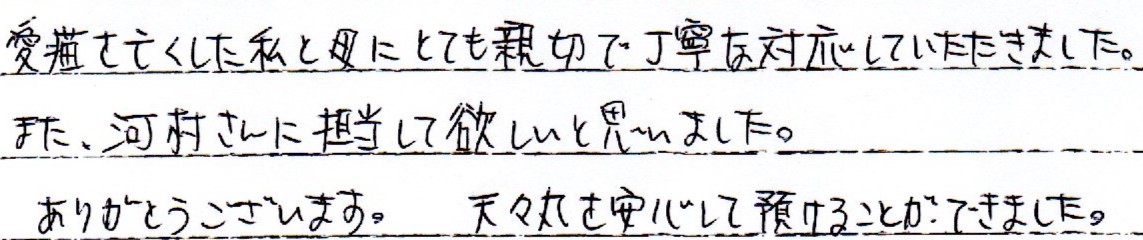 愛猫を亡くした私と母にとても親切で丁寧な対応していただきました。
また、河村さんに担当して欲しいと思いました。
ありがとうございます。　天々丸を安心して預けることができました。